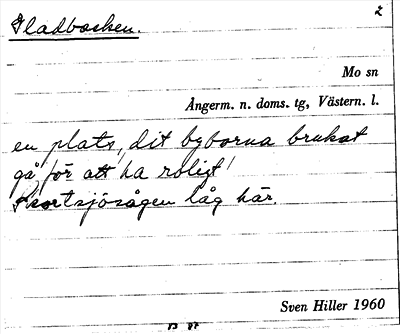 Gladbacken. 2
Mo sn
Ångerm. n. doms. tg, Västern. l.
en plats, dit byborna brukat
gå för att ha roligt!
låg här.
Sven Hiller 1960